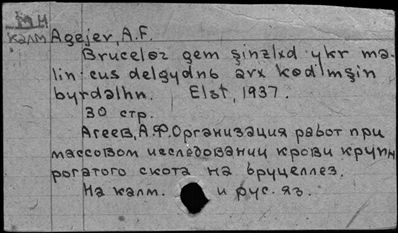 МН
КАЛМ Agejev, A.F.
Bruceloz gem şinzlxd ykr ma-
lin cus delgydnь arx kɵdlmşin
byrdəlhn. Elst, 1937.
30 стр.
Агеев, А.Ф. Организация работ при
массовом исследовании крови крупн
рогатого скота на бруцеллез.
На калм. и рус. яз.